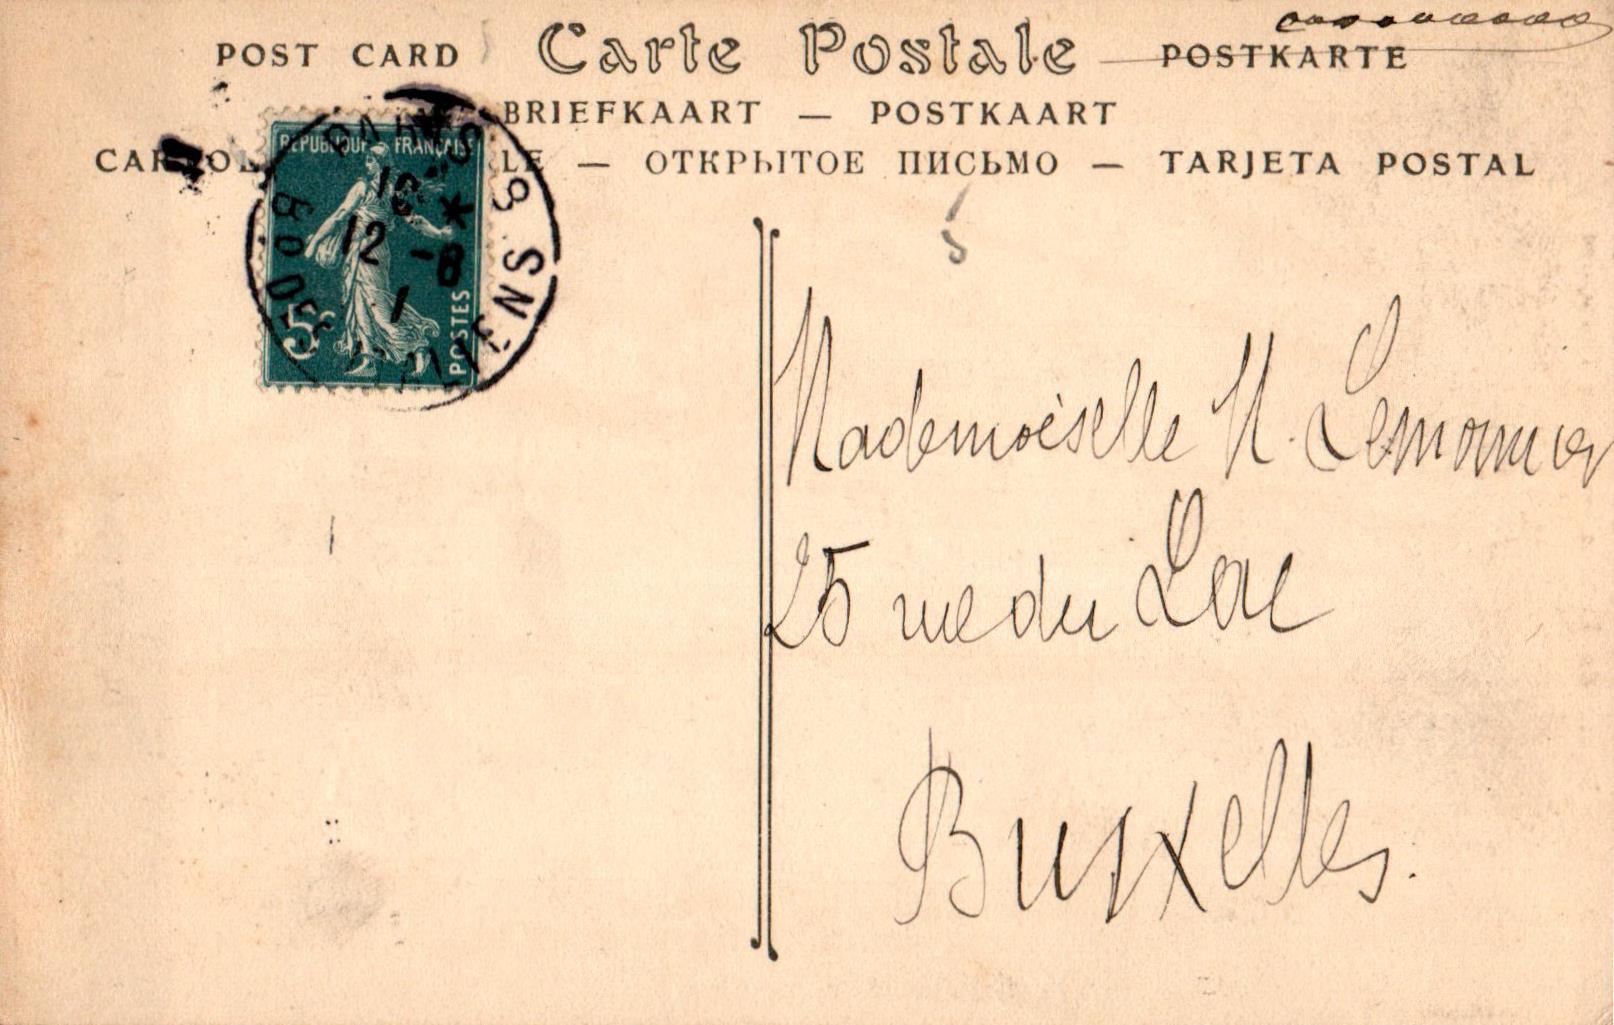 POST CARD Carte Postale POSTKARTE
BRIEFKAART — POSTKAART
— ОТКРЫТОЕ ПИСЬМО — TARJETA POSTAL
REPUBLIQUE FRANÇAISE
12 -8
5c
POSTES
Mademoiselle M. Lemonnier
25 rue du Lac
Bruxelles.